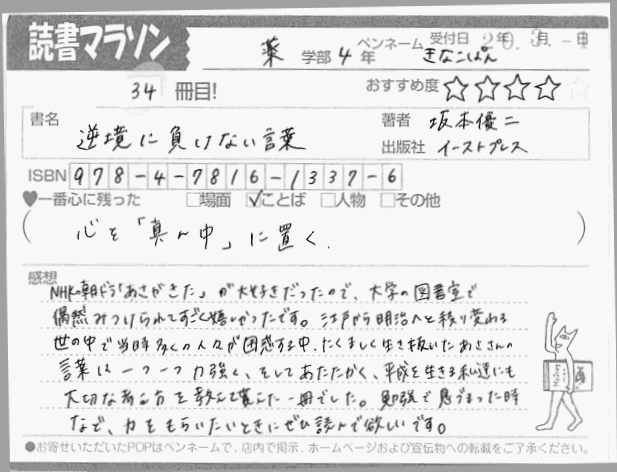 読書マラソン
薬 学部 4 年 ペンネーム きなこぱん 受付日 20.3.-4
34 冊目!
おすすめ度 ☆☆☆☆☆
書名 逆境に負けない言葉
著者 坂本優二
出版社 イーストプレス
ISBN 978-4-7816-1337-6
♥一番心に残った □場面 ☑ことば □人物 □その他
(心を「真ん中」に置く.)
感想
NHKの朝ドラ「あさがきた」が大好きだったので、大学の図書室で
偶然みつけられてすごく嬉しかったです。江戸から明治へと移り変わる
世の中で当時多くの人々が困惑する中、たくましく生き抜いたあささんの
言葉は一つ一つ力強く、そしてあたたかく、平成を生きる私達にも
大切な考え方を教えて貰えた一冊でした。勉強で息づまった時
など、力をもらいたいときにぜひ読んで欲しいです。
●お寄せいただいたPOPはペンネームで、店内で掲示、ホームページおよび宣伝物への転載をご了承ください。